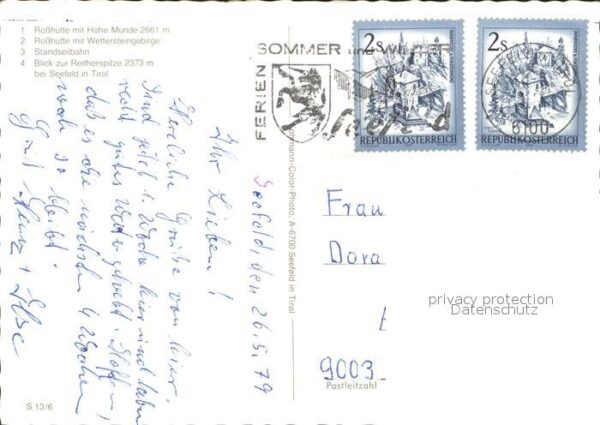 1 Roßhütte mit Hohe Munde 2661 m
2 Roßhütte mit Wettersteingebirge
3 Standseilbahn
4 Blick zur Reitherspitze 2373 m
bei Seefeld in Tirol
FERIEN
SOMMER und WINTER
Seefeld
2s
REPUBLIK ÖSTERREICH
2s
REPUBLIK ÖSTERREICH
SEEFELD
6100
Seefeld, den 26.5.79
Ihr Lieben!
Herzliche Grüße von hier.
Sind jetzt 1. Woche hier und haben
recht gutes Wetter gehabt. Hoffen
daß es die nächsten 4 Wochen
noch so bleibt.
Gruß Heinz + Ilse
mann-Color-Photo, A-6700 Seefeld in Tirol
Frau
Dora
t
9003
Postleitzahl
privacy protection
Datenschutz
S 13/6